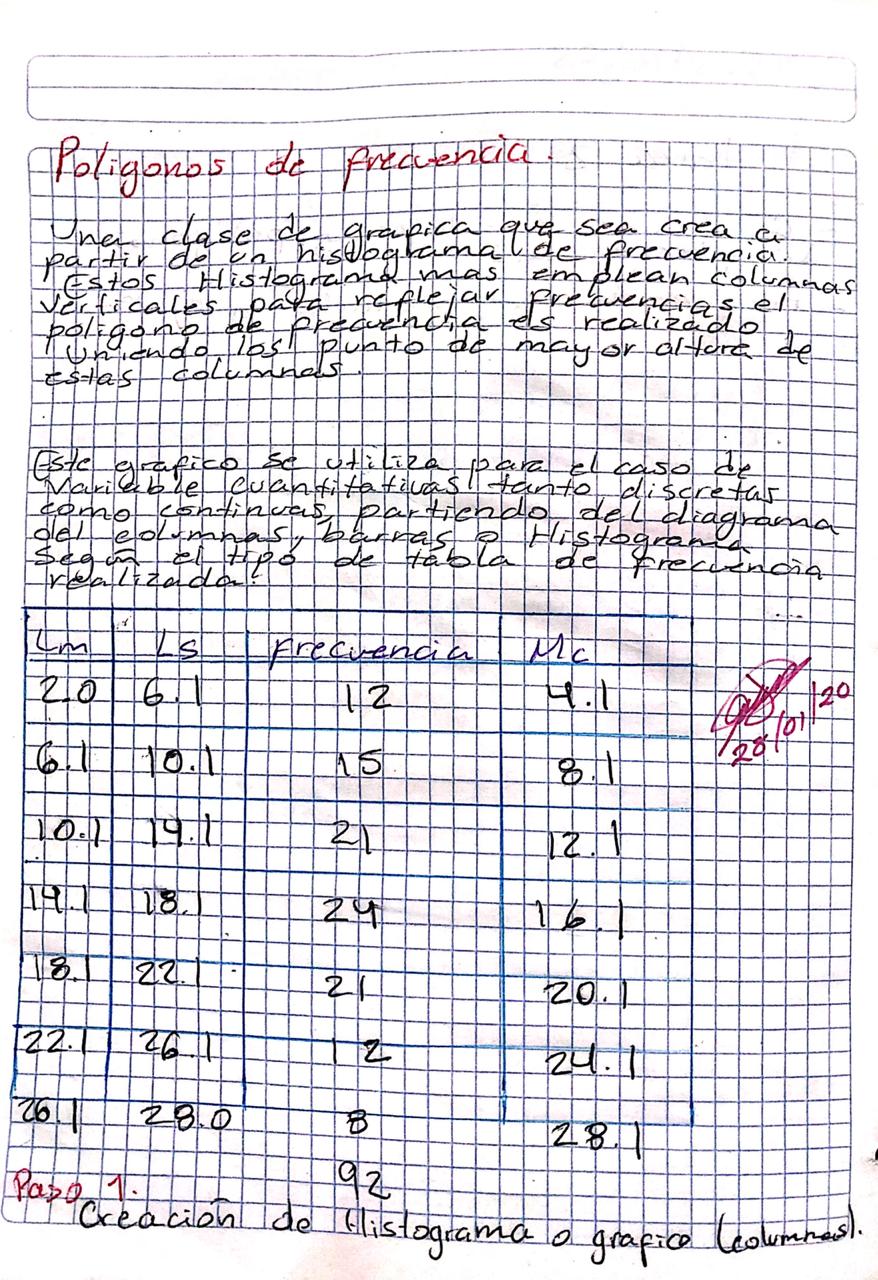 Poligonos de frecuencia.
Una clase de grapica que sea crea a
partir de un histograma de frecuencia.
Estos Histograma mas emplean columnas
verticales para reflejar frecuencias el
poligono de frecuencia es realizado
Uniendo los punto de mayor altura de
estas columnas.
Este grafico se utiliza para el caso de
variable cuantitativas tanto discretas
como continuas, partiendo del diagrama
del columnas, barras o Histograma
Segun el tipo de tabla de frecuencia
realizada.
Lm Ls frecuencia Mc
2.0 6.1 12 4.1
6.1 10.1 15 8.1
10.1 14.1 21 12.1
14.1 18.1 24 16.1
18.1 22.1 21 20.1
22.1 26.1 12 24.1
26.1 28.0 8 28.1
92
28/01/20
Paso 1.
Creación de Histograma o grafico (columnas).